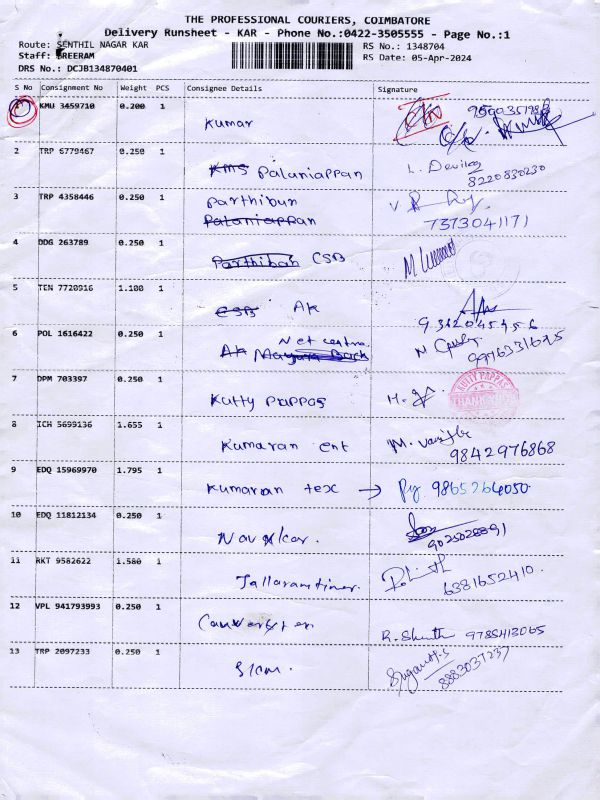 THE PROFESSIONAL COURIERS, COIMBATORE
Delivery Runsheet - KAR - Phone No.:0422-3505555 - Page No.:1
Route: SENTHIL NAGAR KAR
RS No.: 1348704
Staff: SREERAM
RS Date: 05-Apr-2024
DRS No.: DCJB134870401
S No Consignment No Weight PCS Consignee Details Signature
1 KMU 3459710 0.200 1 Kumar
2 TRP 6779467 0.250 1 KMS Palaniappan
8220830230
3 TRP 4358446 0.250 1 Parthiban
Palaniappan
7373041171
4 DDG 263789 0.250 1 Parthiban CSB
5 TEN 7720916 1.100 1 CSB AK
6 POL 1616422 0.250 1 Net centra
AK
7 DPM 703397 0.250 1 Kutty pappas
KUTTY PAPPAS
THANK YOU
8 ICH 5699136 1.655 1 Kumaran ent
9842976868
9 EDQ 15969970 1.795 1 Kumaran tex → 9865264050
10 EDQ 11812134 0.250 1 Navalkar.
11 RKT 9582622 1.580 1
6381652410.
12 VPL 941793993 0.250 1
9785413065
13 TRP 2097233 0.250 1
8883037237